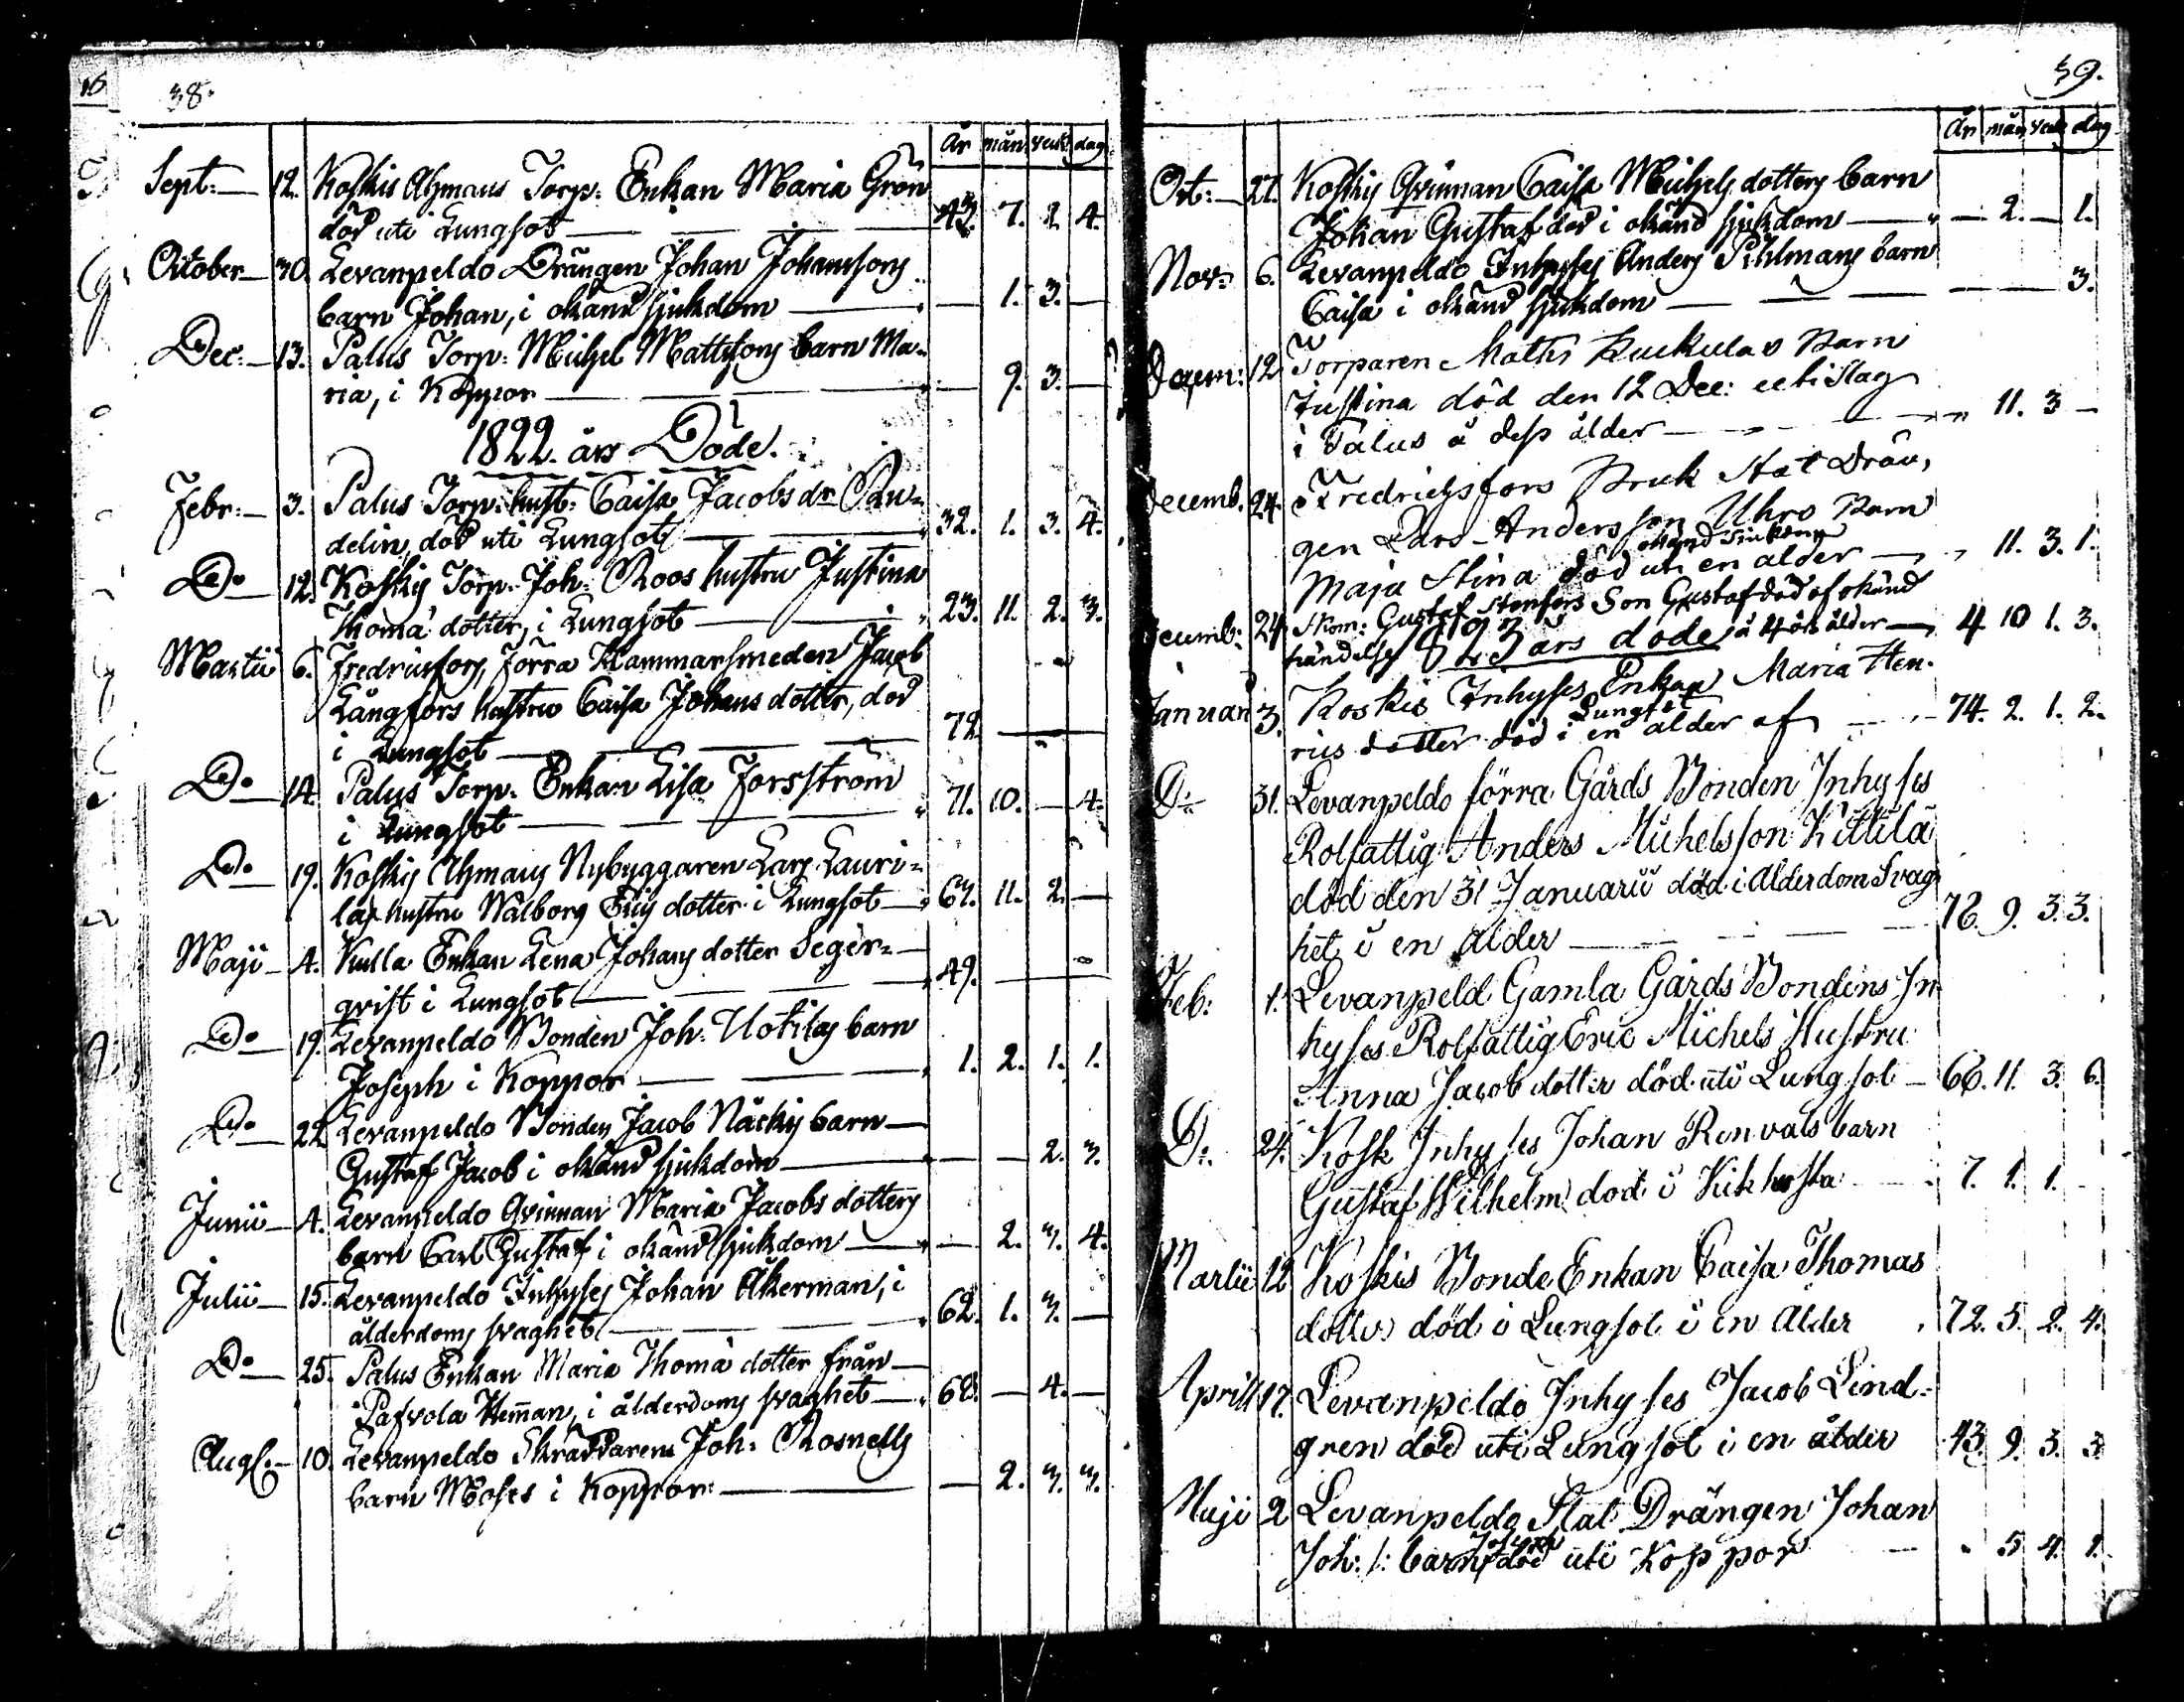 16
38.
År mån veck dag
Sept: 12. Koskis Ahmaus Torp: Enkan Maria Grön
död uti Lungsot 43. 7. 2. 4.
October 30. Levanpeldo Drängen Johan Johanssons
barn Johan, i okänd sjukdom 1. 3.
Dec: 13. Palus Torp: Michel Mattssons barn Ma-
ria, i Koppor 9. 3.
1822. års Döde.
Febr: 3. Palus Torp: hust: Caisa Jacobs dr
delin, död uti Lungsot 32. 1. 3. 4.
Do 12. Koskis Torp. Joh: Roos hustru Justina
Thomä dotter, i Lungsot 23. 11. 2. 3.
Martii 6. Fredricsfors, förra Hammarsmeden Jacob
Långfors hustru Caisa Johans dotter, död
i Lungsot 72.
Do 14. Palus Torp. Enkan Lisa Forsström
i Lungsot 71. 10. 4.
Do 19. Koskis Ahmaus Nybyggaren Lars Lauri-
las hustru Walborg Erics dotter i Lungsot 67. 11. 2.
Maji 4. Kulla Enkan Lena Johans dotter Seger-
qvist i Lungsot 49.
Do 19. Levanpeldo Bonden Joh: Uotilas barn
Joseph i Koppor 1. 2. 1. 1.
Do 22. Levanpeldo Bonden Jacob Näckis barn
Gustaf Jacob i okänd sjukdom 2. 3.
Junii 4. Levanpeldo Qvinnan Maria Jacobs dotters
barn Carl Gustaf i okänd sjukdom 2. 3. 4.
Julii 15. Levanpeldo Inhyses Johan Åkerman, i
ålderdoms svaghet 62. 1. 3.
Do 25. Palus Enkan Maria Thomä dotter från
Pafvola Heman, i ålderdoms svaghet 68. 4.
Augs. 10. Levanpeldo Skräddarens Joh: Rosnells
barn Moses i Koppor 2. 3. 3.
39.
År mån veck dag
Oct: 27. Koskis Qvinnan Caisa Michels dotters barn
Johan Gustaf död i okänd sjukdom 2. 1.
Nov: 6. Levanpeldo Inhyses Anders Pihlmans barn
Caisa i okänd sjukdom 3.
Decem: 12 Torparen Matts Kuckulas Barn
Justina död den 12 Dec: uti Slag
i Palus å dess ålder 11. 3
Decemb. 24. Fredrichsfors Bruk Stat Drän,
gen Lars Andersson Uhrs Barn
okänd Siukdom
Maja Stina död uti en alder 11. 3. 1.
Decemb: 24 Skom: Gustaf Stenfors Son Gustaf död af okänd
händelse å 4 års ålder 4. 10 1. 3.
1823 års döde
Januari 3. Koskis Inhyses Enkan Maria Hen-
Lungsot
rics dotter död i en alder af 74. 2. 1. 2.
Do 31. Levanpeldo förra Gårds Bonden Inhyses
Rotfattig Anders Michelsson Kittilä
död den 31 Januarii död i Alderdom Svag
het i en alder 78. 9. 3. 3.
Feb: 1. Levanpeld Gamla Gårds Bondens In
hyses Rotfattig Eric Michels Hustru
Anna Jacob dotter död uti Lungsot 66. 11. 3. 6.
Do 24. Kosk Inhyses Johan Renvals barn
Gustaf Wilhelm dod i Kikhosta 7. 1. 1.
Martii 12 Koskis Bonde Enkan Caisa Thomas
dotter död i Lungsot i en Alder 72. 5. 2. 4.
April 17. Levanpeldo Inhyses Jacob Lind-
gren död uti Lungsot i en ålder 43. 9. 3. 3
Maji 2 Levanpeldo Stat Drängen Johan
Joh: /: barn död uti Koppor 5 4. 1.